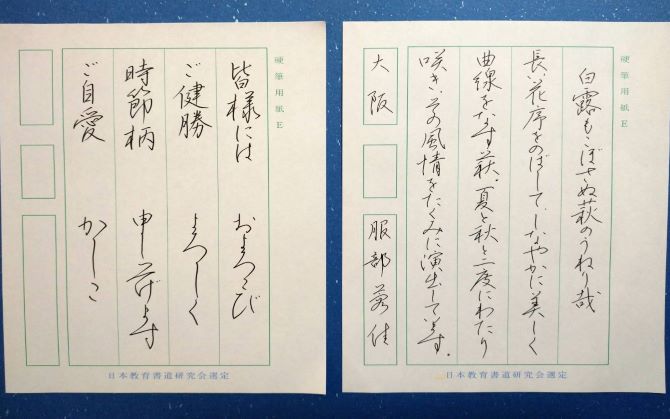 硬筆用紙E
白露もこぼさぬ萩のうねり哉
長い花序をのばして、しなやかに美しく
曲線をなす萩。夏と秋と二度にわたり
咲き、その風情をたくみに演出して
大阪
服部
佳
日本教育書道研究会選定
硬筆用紙E
皆様には
およろこび
ご健勝
よろしく
時節柄
申し上げます
ご自愛
かしこ
日本教育書道研究会選定